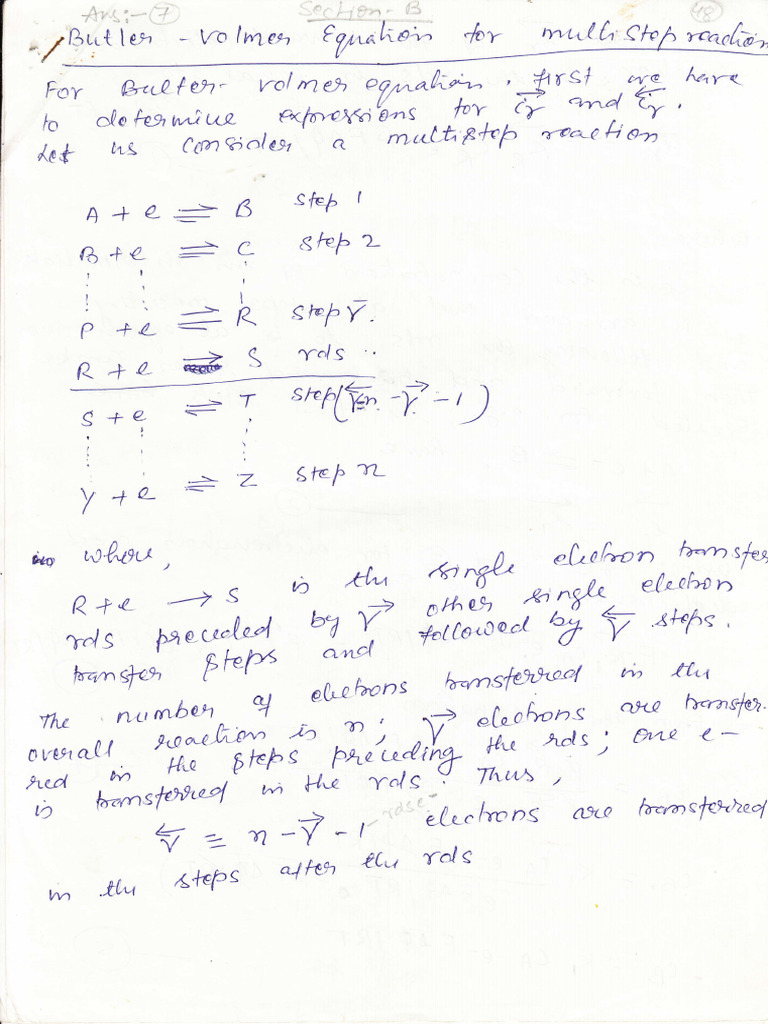 Ans:- 7 Section-B 48
Butler - Volmer Equation for multistep reaction
For Bulter- volmer equation, first we have
to determine expressions for i⃗r and i⃖r.
Let us consider a multistep reaction
A + e ⇌ B step 1
B + e ⇌ C step 2
P + e ⇌ R step γ⃗.
R + e ⇌ S rds
S + e ⇌ T step (γ⃖=n - γ⃗ - 1)
Y + e ⇌ Z step n
where,
R + e → S is the single electron transfer
rds preceded by γ⃗ other single electron
transfer steps and followed by γ⃖ steps.
The number of electrons transferred in the
overall reaction is n; γ⃗ electrons are transfer-
red in the steps preceding the rds; one e-
is transferred in the rds. Thus,
γ⃖ = n - γ⃗ - 1 - rdse- electrons are transferred
in the steps after the rds